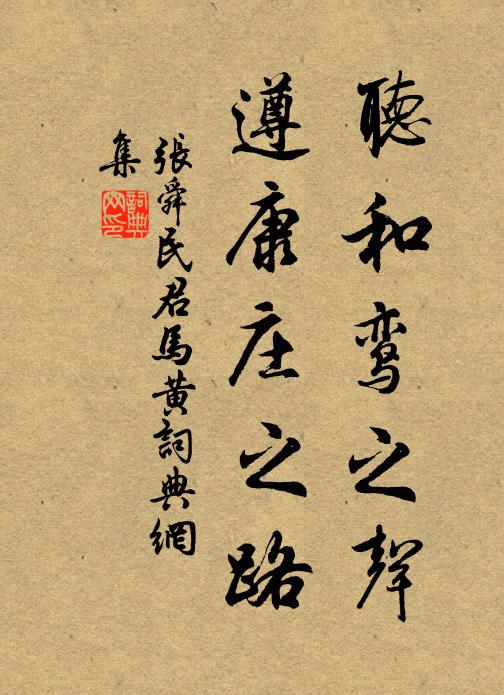 聽和鸾之聲
遵康庄之路
張舜民君馬黄詞典網
集
詞典
网印